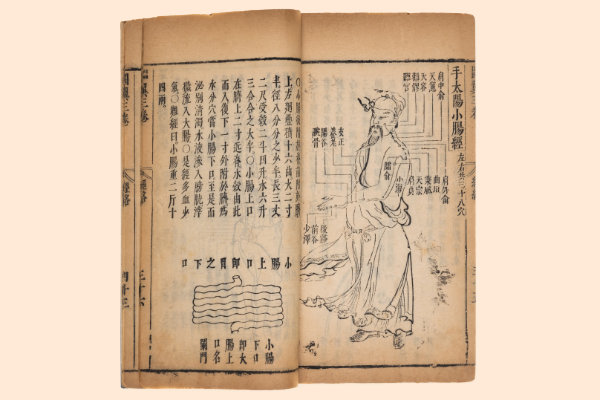 手太陽小腸經 左右共三十八穴
肩中俞
天窓
天容
顴髎
聽宮
肩外俞
曲垣
秉風
天宗
臑俞
肩貞
小海
支正
養老
陽谷
腕骨
後谿
前谷
少澤
○小腸後附於脊前附於臍
上左廻疊積十六曲大二寸
半徑八分分之少半長三丈
二尺受穀二斗四升水六升
三合合之大半○小腸上口
在臍上二寸近脊水穀由此
而入復下一寸外附於臍爲
水分穴當小腸下口至是而
泌別清濁水液滲入膀胱滓
穢流入大腸○是經多血少
氣○難經曰小腸重二斤十
四兩
小腸上口即胃之下口
小腸
下口
即大
腸上
口名
闌門
圖翼三卷
經絡
三十六
圖翼三卷
經絡
四十三